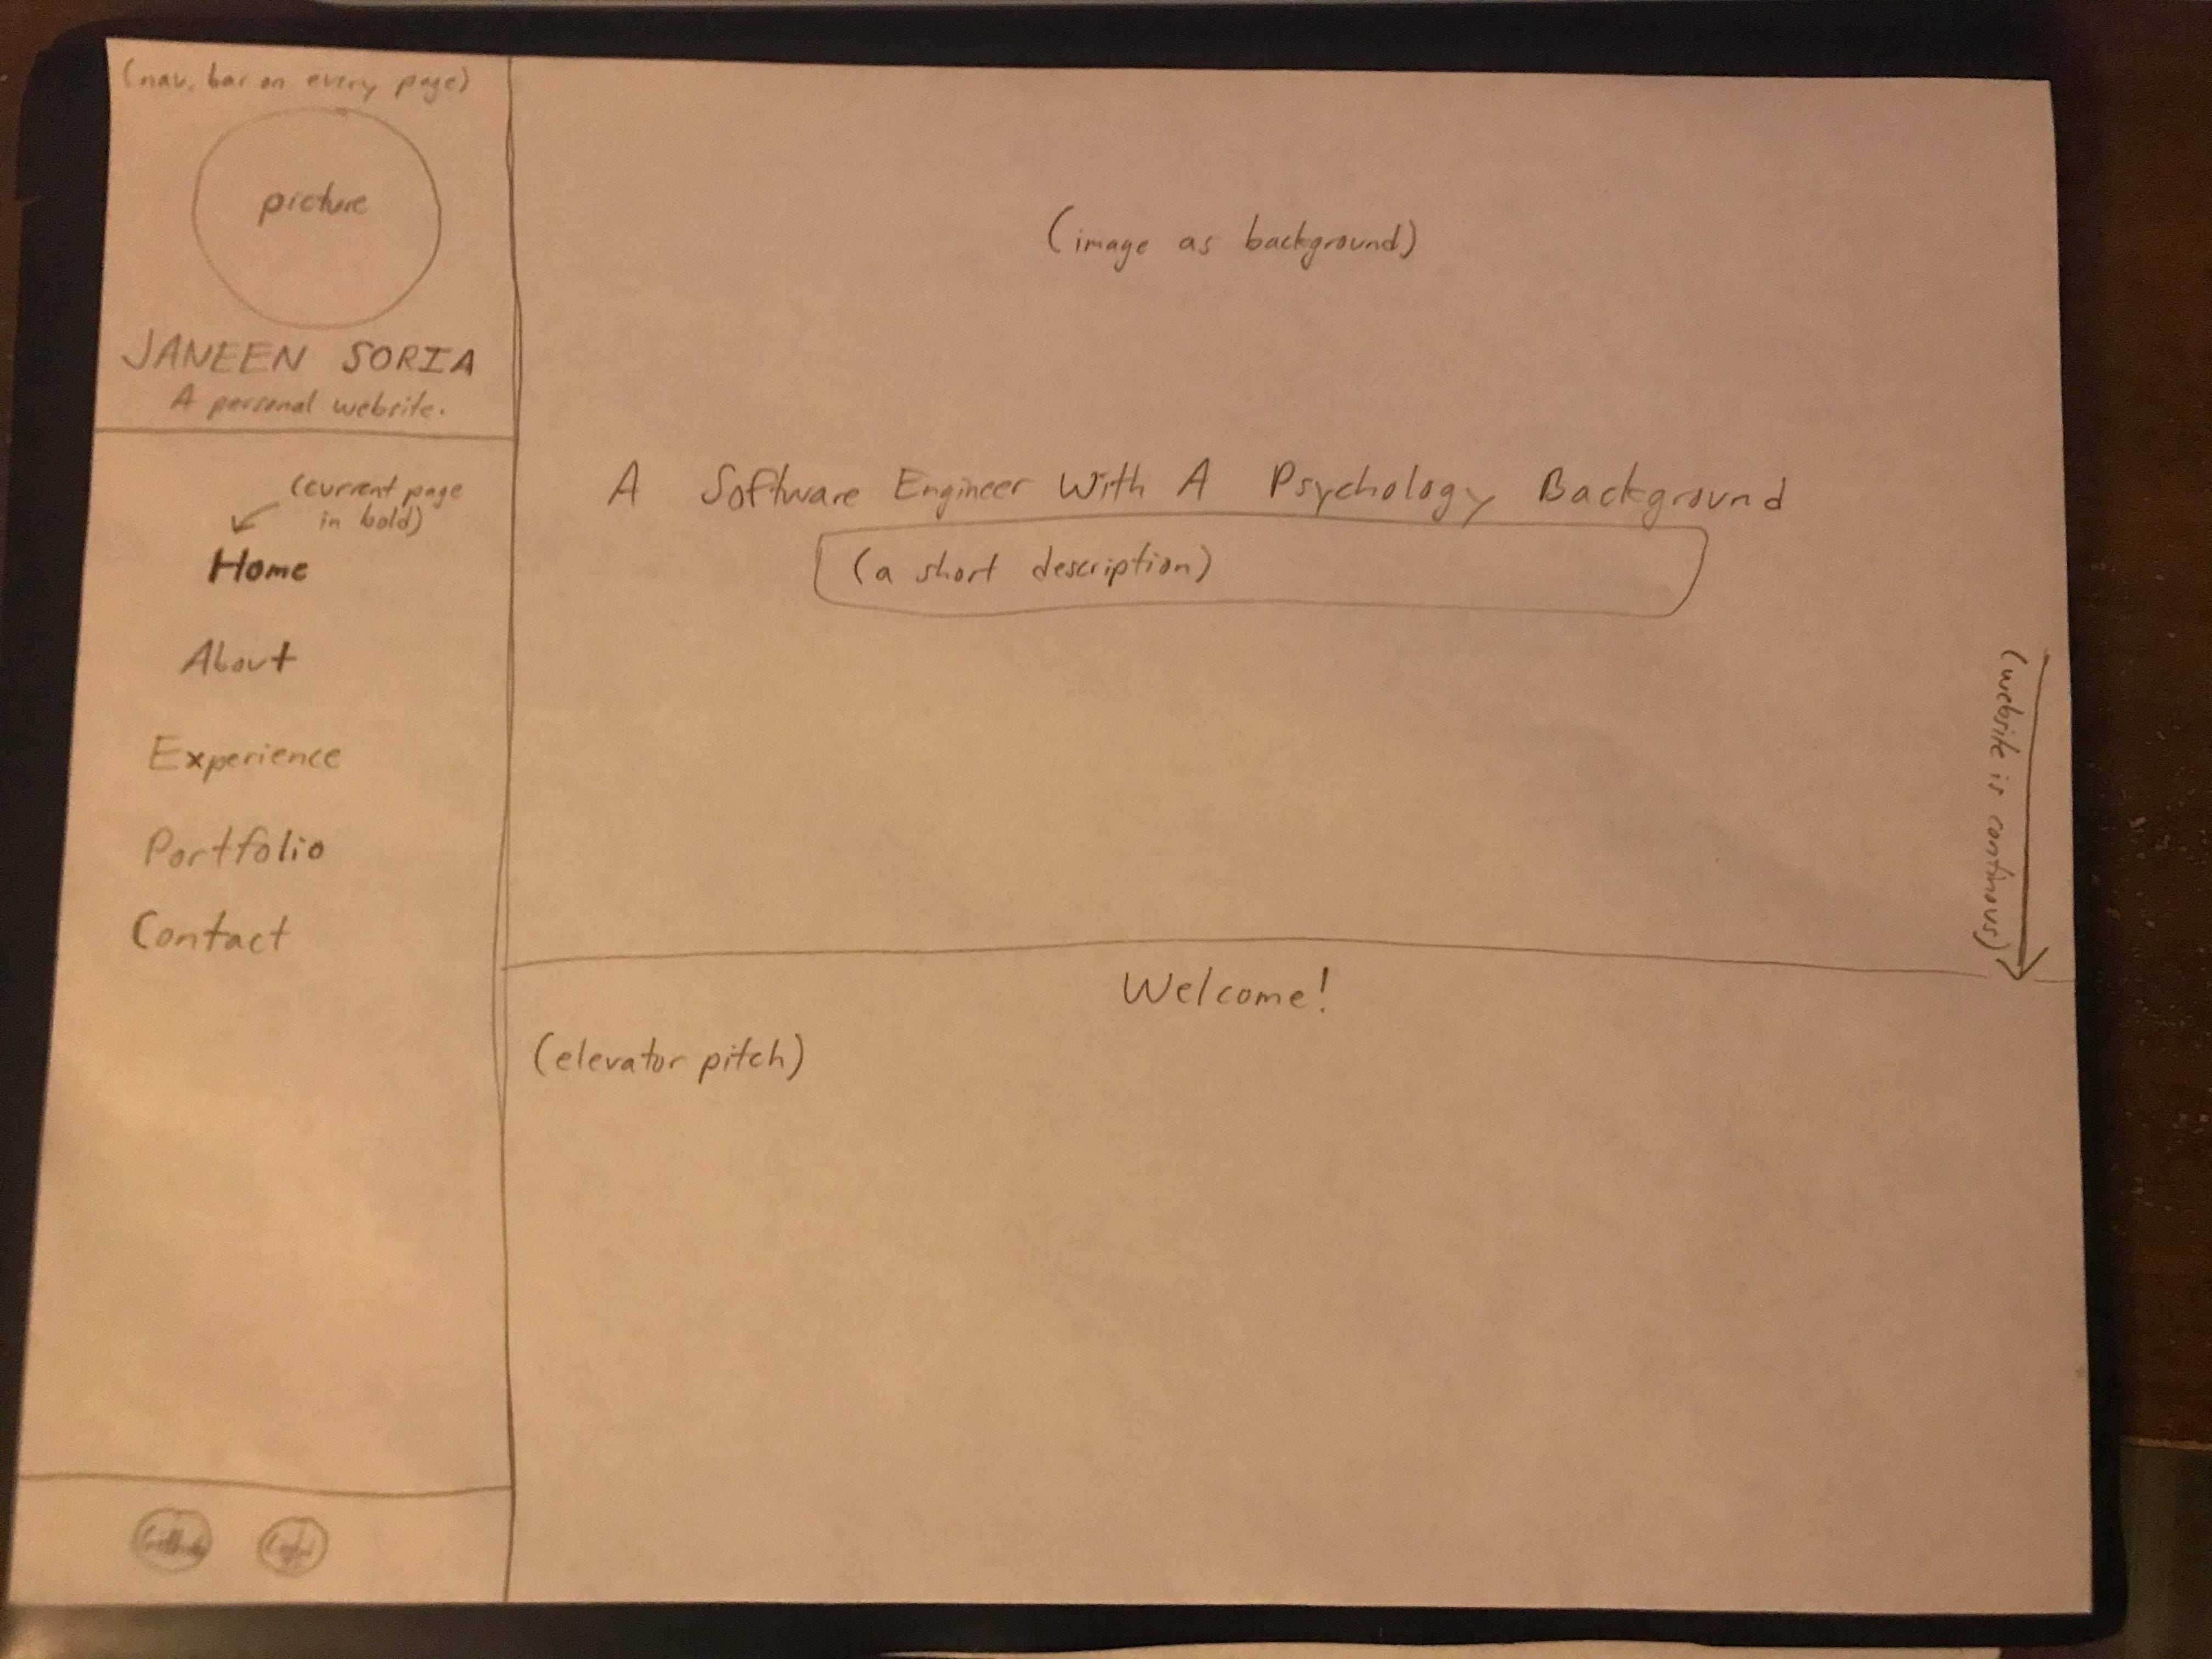 (nav. bar on every page)
picture
JANEEN SORIA
A personal website.
(current page
in bold)
Home
About
Experience
Portfolio
Contact
(image as background)
A Software Engineer With A Psychology Background
(a short description)
(website is continous)
Welcome!
(elevator pitch)